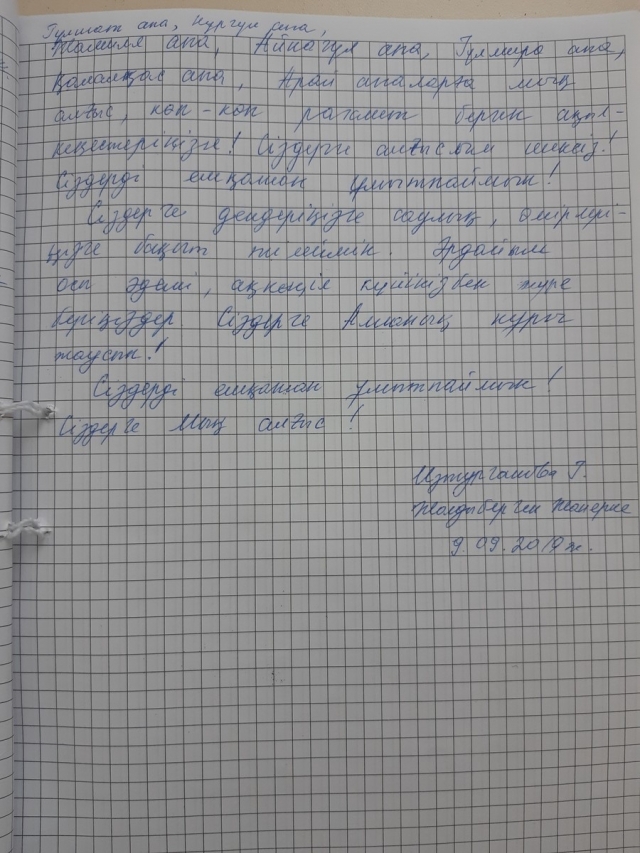 Гүлшат апа, Нұргүл апа,
Жамиля апа, Айнагүл апа, Гүлмира апа,
апа, Арай апаларға мың
алғыс, көп-көп рахмет берген ақыл-
кеңестеріңізге! Сіздерге алғысым шексіз!
Сіздерді ешқашан ұмытпаймын!
Сіздерге дендеріңізге саулық, өмірлері-
ңізге бақыт тілеймін. Әрдайым
осы әдемі, ақкөңіл күйіңізбен жүре
беріңіздер Сіздерге Алланың нұры
жаусын!
Сіздерді ешқашан ұмытпаймын!
Сіздерге Мың алғыс!
Г.
Жолдыберген
9.09.2019ж.